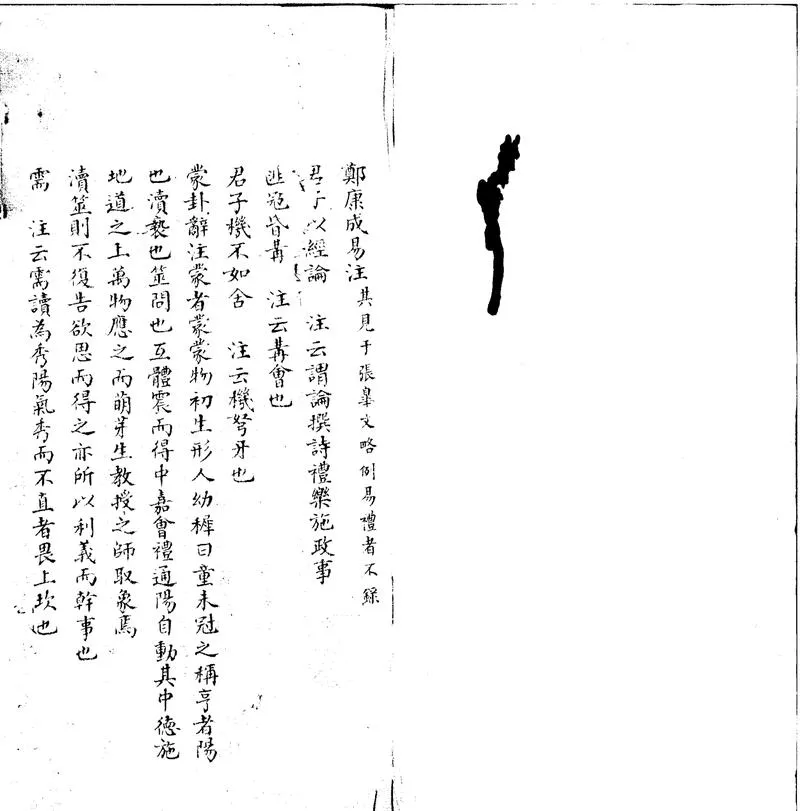 鄭康成易注 其見于張皋文略例易禮者不錄
君子以經論 注云謂論撰詩禮樂施政事
匪宼昏冓 注云冓會也
君子機不如舍 注云機弩牙也
蒙卦辭注蒙者蒙蒙物初生形人幼稺曰童未冠之稱亨者陽
也瀆褻也筮問也互體震而得中嘉會禮通陽自動其中德施
地道之上萬物應之而萌芽生教授之師取象焉
瀆筮則不復告欲思而得之亦所以利義而幹事也
需 注云需讀為秀陽氣秀而不直者畏上坎也